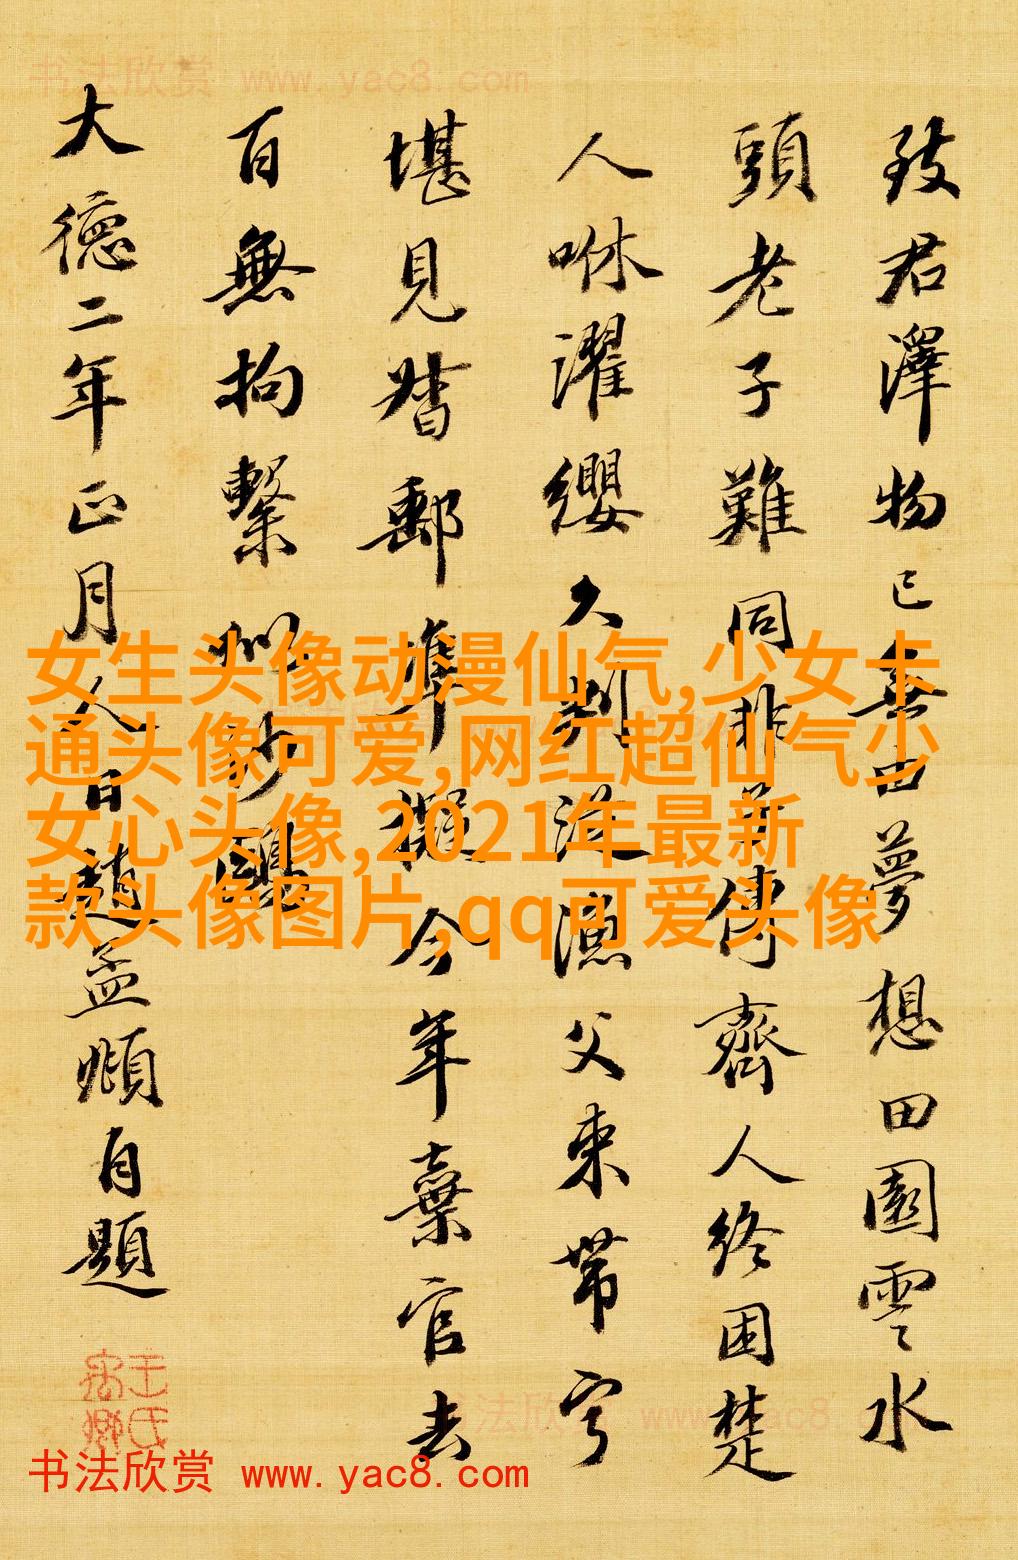 书法欣赏 www.yac8.com
致君澤物已無由夢想田園雲水
頭老子難同非傳齊人終困楚
人咻濯纓久判從漁父束帶寧
堪見督郵準擬今年棄官去
百無拘繫似沙鷗
大德二年正月人日趙孟頫自題
女生头像动漫仙气,少女卡
通头像可爱,网红超仙气少
女心头像,2021年最新
款头像图片,qq可爱头像
书法欣赏 www.yac8.com
书法欣赏 www.yac8.com